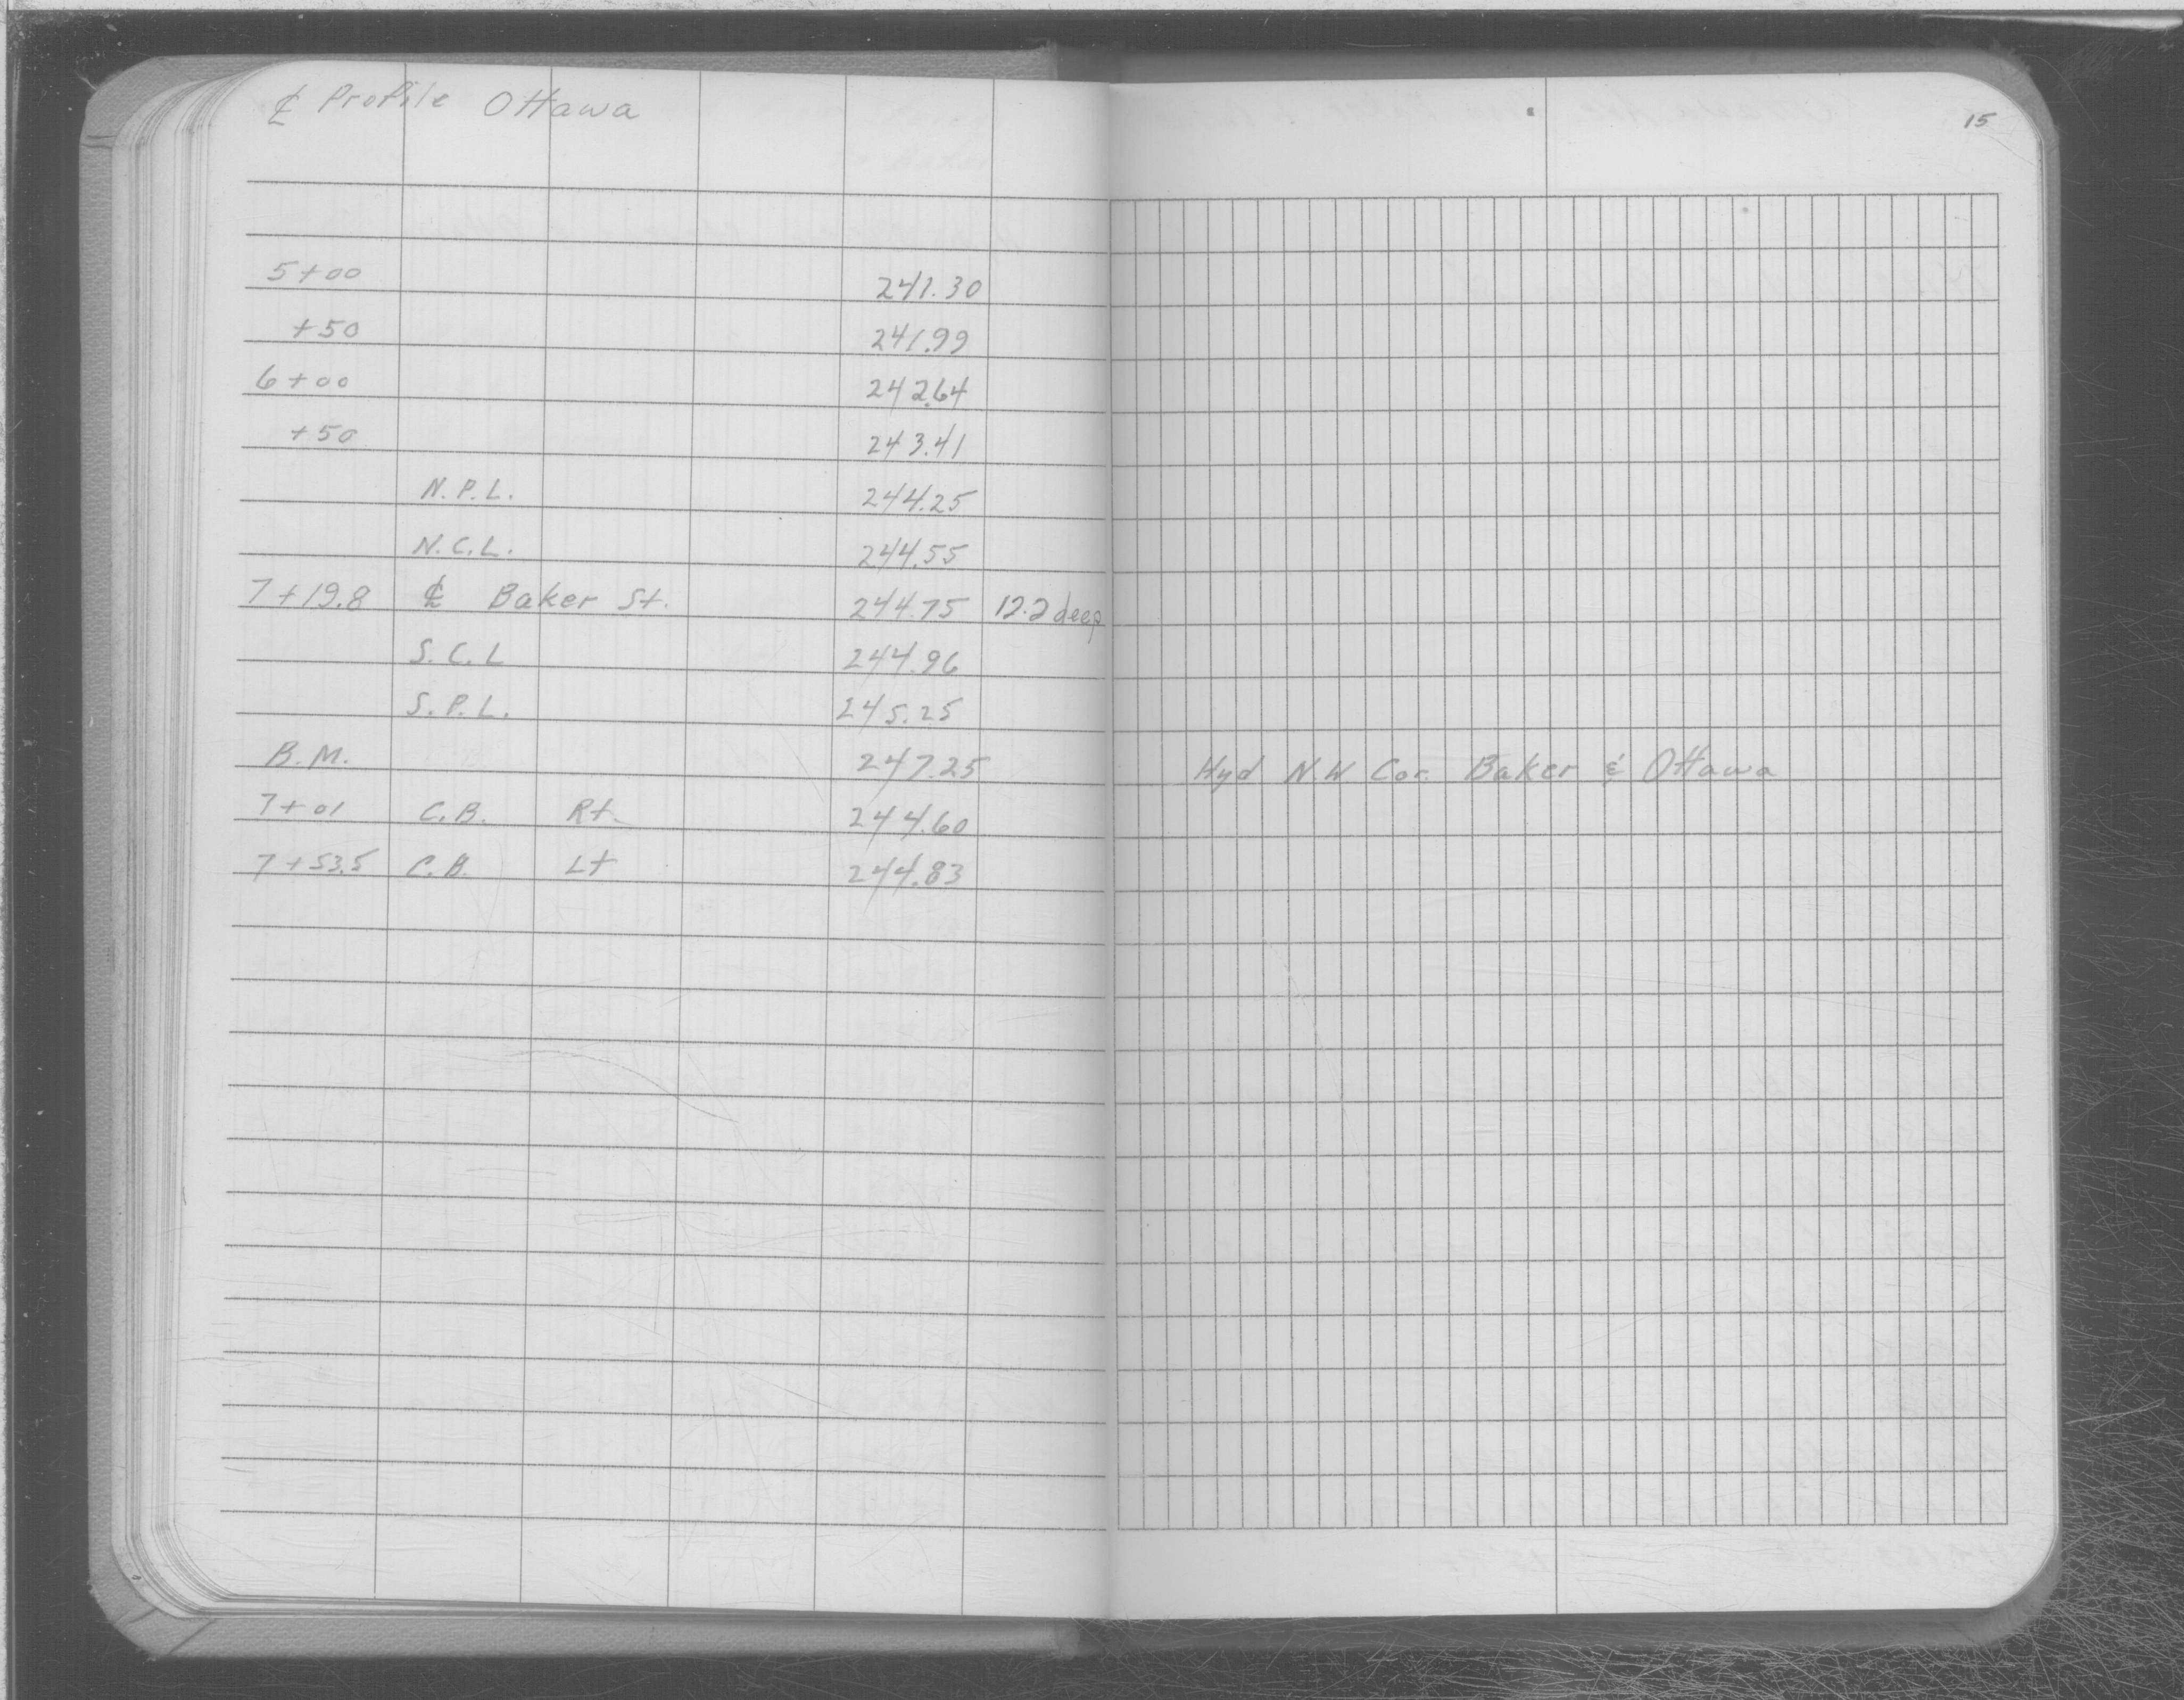 ℄ Profile Ottawa
15
5+00 241.30
+50 241.99
6+00 242.64
+50 243.41
N.P.L. 244.25
N.C.L. 244.55
7+19.8 ℄ Baker St. 244.75 12.2 deep
S.C.L 244.96
S.P.L. 245.25
B.M. 247.25 Hyd N.W Cor. Baker & Ottawa
7+01 C.B. Rt. 244.60
7+53.5 C.B. Lt 244.83